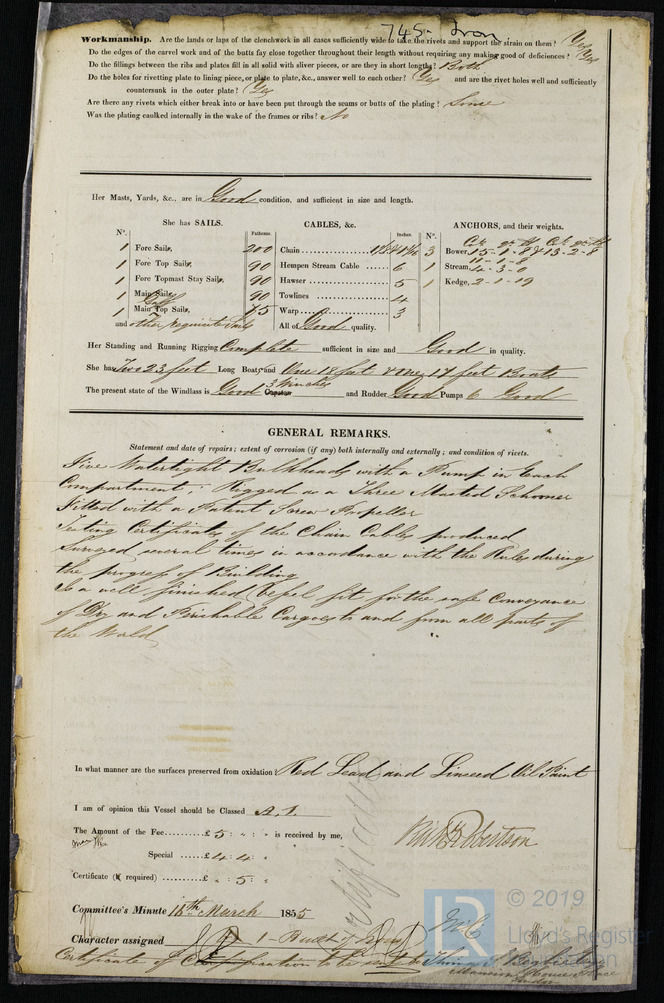 745 Iron
Workmanship. Are the lands or laps of the clenchwork in all cases sufficiently wide to take the rivets and support the strain on them? Yes
Do the edges of the carvel work and of the butts fay close together throughout their length without requiring any making good of deficiences? Yes
Do the fillings between the ribs and plates fill in all solid with sliver pieces, or are they in short lengths? Both
Do the holes for rivetting plate to lining piece, or plate to plate, &c., answer well to each other? Yes and are the rivet holes well and sufficiently
countersunk in the outer plate? Yes
Are there any rivets which either break into or have been put through the seams or butts of the plating? Some
Was the plating caulked internally in the wake of the frames or ribs? No
Her Masts, Yards, &c., are in Good condition, and sufficient in size and length.
She has SAILS.
CABLES, &c.
ANCHORS, and their weights.
N°.
Fathoms.
Inches.
N°.
1 Fore Sails, 200 Chain 3 Bower,
1 Fore Top Sails, 90 Hempen Stream Cable 6 1 Stream, 4-3-0
1 Fore Topmast Stay Sails, 90 Hawser 5 1 Kedge, 2-1-19
1 Main Sails, 90 Towlines 4
1 Main Top Sails, Gaff 75 Warp 3
and other requisite Sails All of Good quality.
Her Standing and Running Rigging Complete sufficient in size and Good in quality.
She has Two 23 feet Long Boats and One 18 feet & One 17 feet Boats
The present state of the Windlass is Good 3 Winches Capstan and Rudder Good Pumps 6 Good
GENERAL REMARKS.
Statement and date of repairs; extent of corrosion (if any) both internally and externally; and condition of rivets.
Five Watertight Bulkheads with a Pump in Each
Compartment; Rigged as a Three Masted Schooner
Fitted with a Patent Screw Propellar
Testing Certificates of the Chain Cables produced
Surveyed several times in accordance with the Rules during
the progress of Building
Is a well finished Vessel fit for the safe Conveyance
of Dry and Perishable Cargoes to and from all parts of
the World
In what manner are the surfaces preserved from oxidation Red Lead and Linseed Oil Paint
I am of opinion this Vessel should be Classed A.1.
The Amount of the Fee £ 5 : " : " is received by me,
Special £ 4 : 4 : "
Certificate (if required) £ " : 5 : "
Committee's Minute 16th March 1855
Character assigned 1 - Built of Iron
Certificate of to be sent to Thomas
Mansion House Place
London
© 2019
Lloyd's Register
Foundation